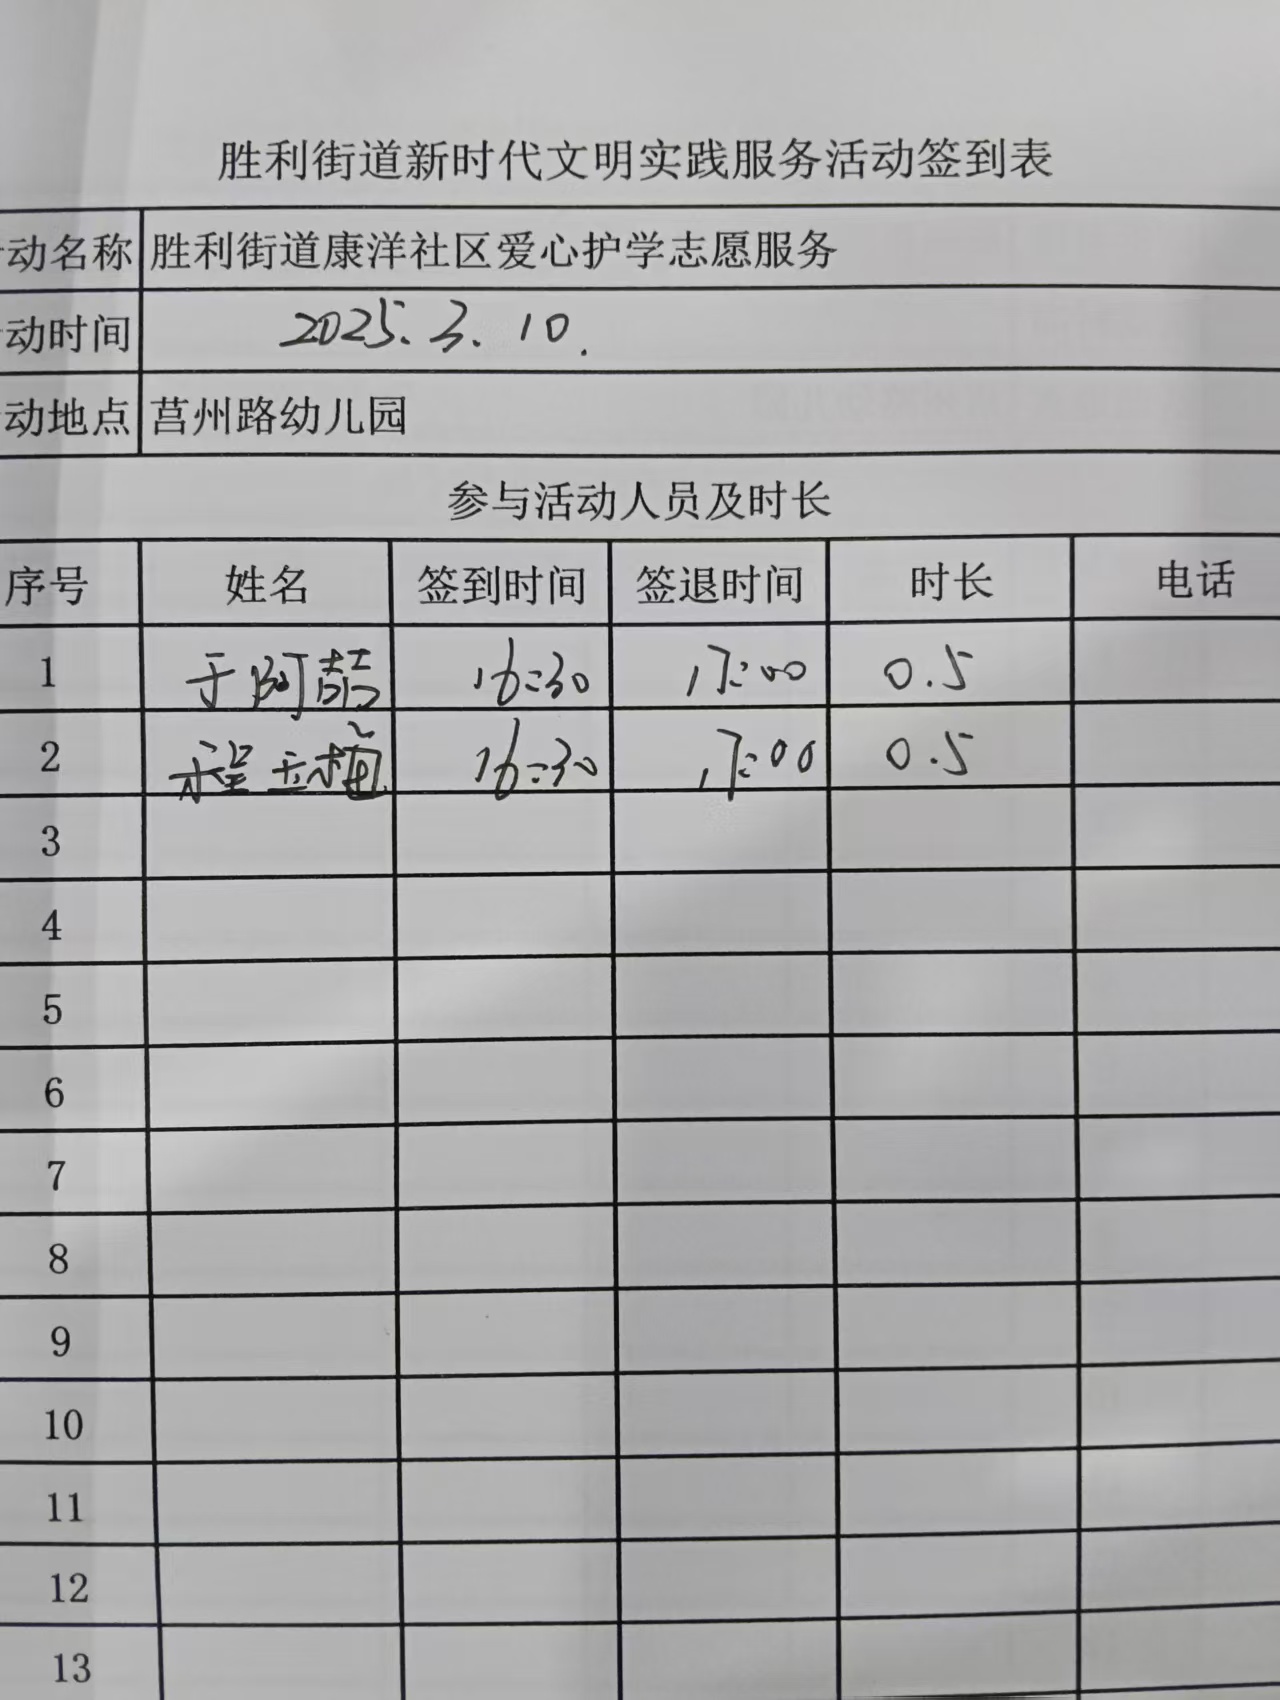 胜利街道新时代文明实践服务活动签到表
动名称 胜利街道康洋社区爱心护学志愿服务
动时间 2025.3.10.
动地点 莒州路幼儿园
参与活动人员及时长
序号 姓名 签到时间 签退时间 时长 电话
1 于阿喆 16:30 17:00 0.5
2 程 16:30 17:00 0.5
3
4
5
6
7
8
9
10
11
12
13